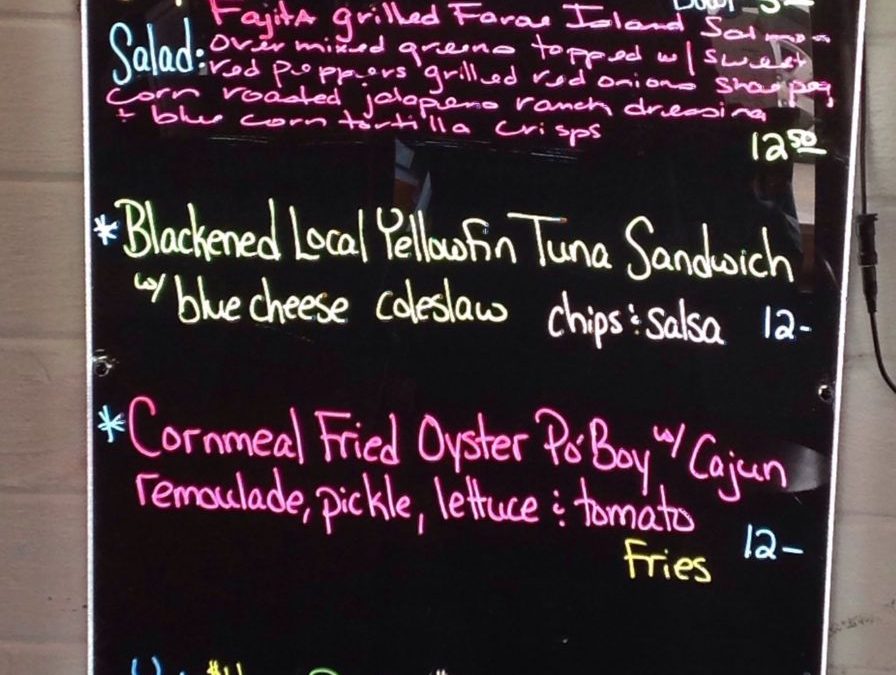 Fajita grilled Faroe Island
Salad: over mixed greens topped w/ sweet
red peppers grilled red onions sharp
corn roasted jalapeno ranch dressing
+ blue corn tortilla crisps
12 50
*Blackened Local Yellowfin Tuna Sandwich
w/ blue cheese coleslaw chips & salsa 12-
*Cornmeal Fried Oyster Po'Boy w/ Cajun
remoulade, pickle, lettuce & tomato
Fries 12-